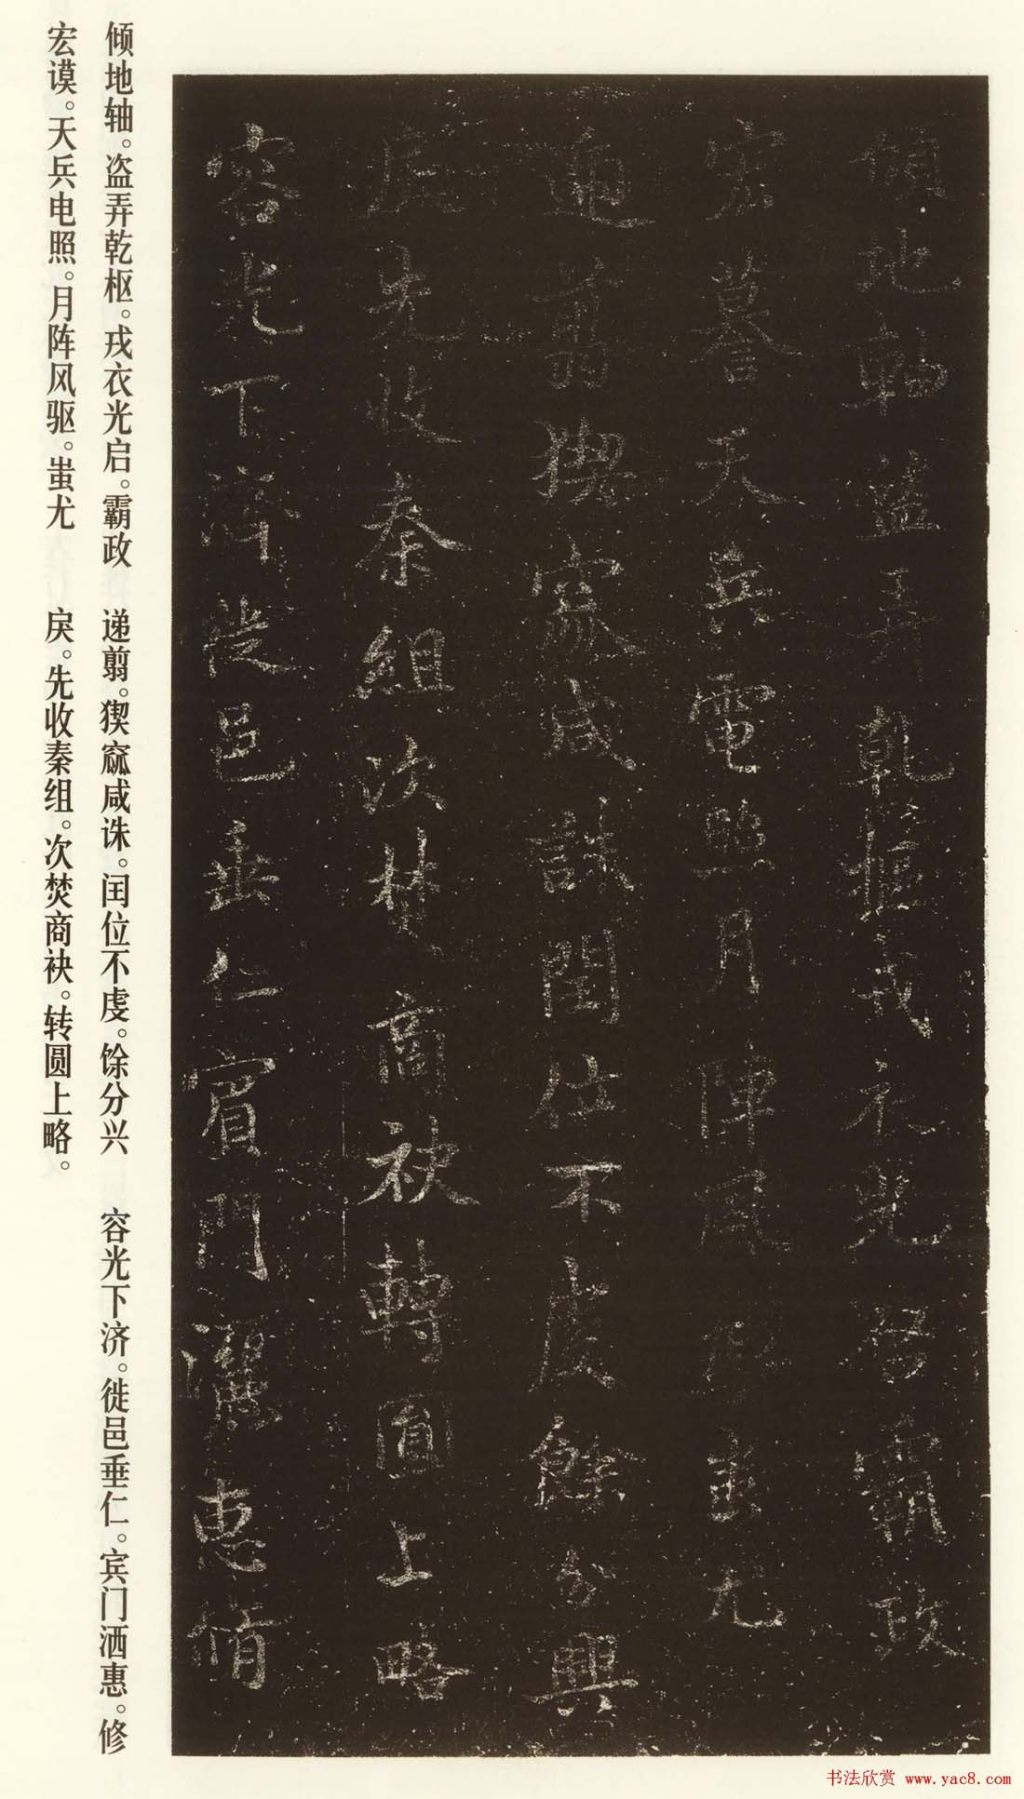 傾地軸盜弄乾樞戎衣光啓霸政
宏謩天兵電照月陣風驅蚩尤
遞翦猰窳咸誅閏位不虔餘分興
戾先收秦組次焚商袂轉圓上略
容光下濟徙邑垂仁賓門灑惠脩
倾地轴。盗弄乾枢。戎衣光启。霸政
宏谟。天兵电照。月阵风驱。蚩尤
递翦。猰窳咸诛。闰位不虔。馀分兴
戾。先收秦组。次焚商袂。转圆上略。
容光下济。徙邑垂仁。宾门洒惠。修
书法欣赏 www.yac8.com